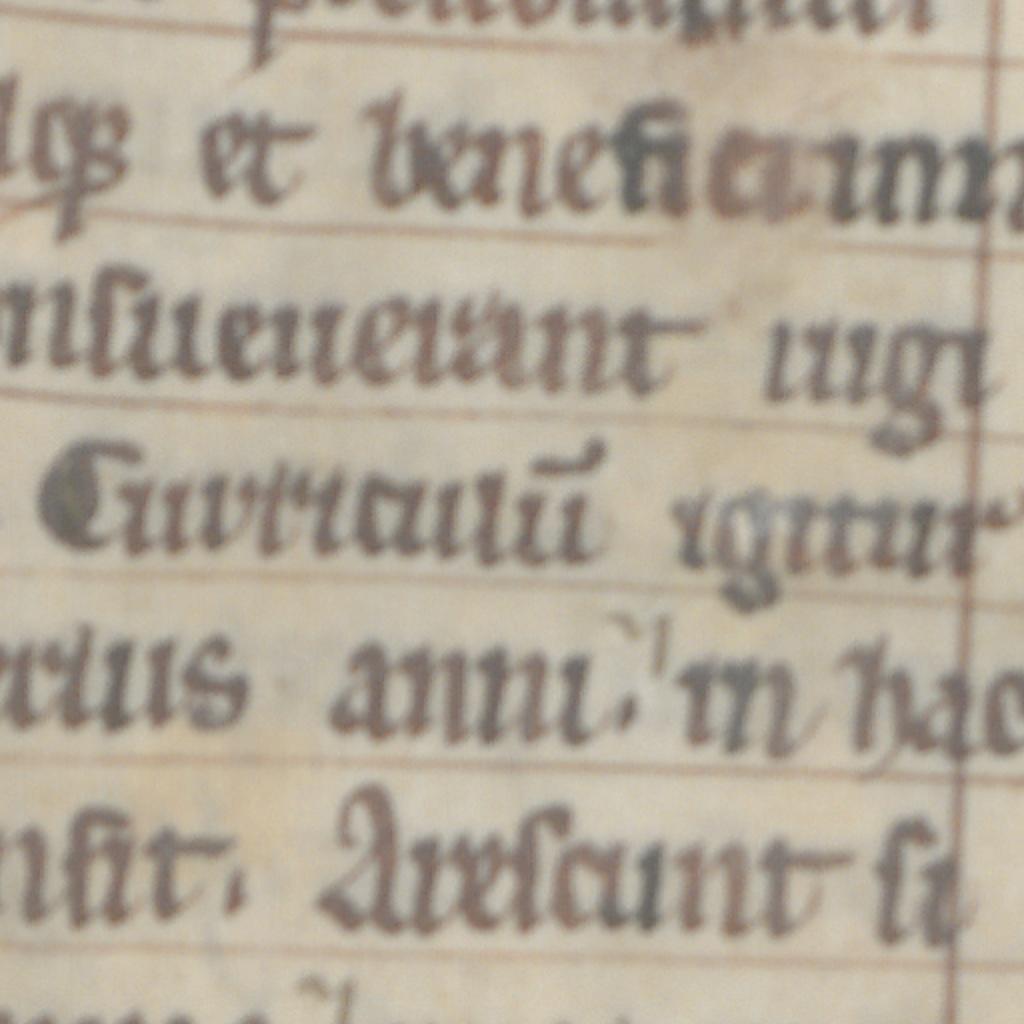 et beneficium
nsueuerant iugi
Curriculū igitur
rius anni. in hac
nsit. Arescunt si